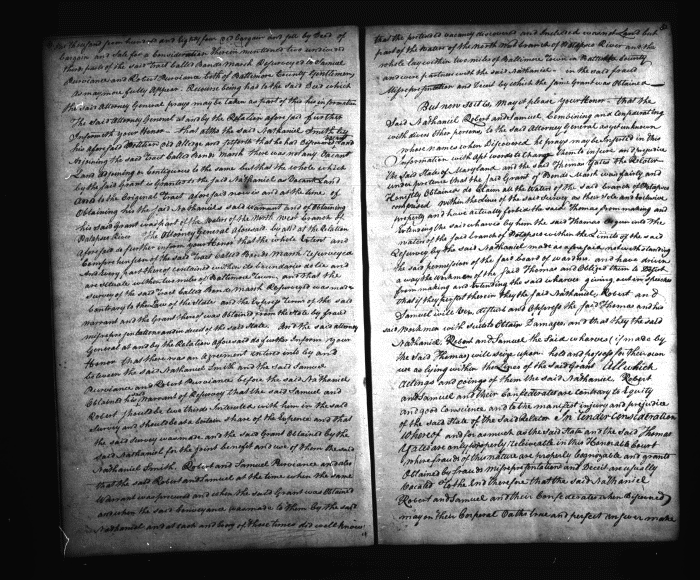 One thousand seven hundred and eighty four did bargain and sell by Deed of
bargain and Sale for a consideration therein mentioned two undivided
third parts of the said Tract called Bonds Marsh Resurveyed to Samuel
Purviance and Robert Purviance both of Baltimore County Gentlemen
as may more fully appear. Recourse being had to the said Deed which
the said Attorney General prays may be taken as part of this his information
The said Attorney General at and by the Relation aforesaid further
Informeth your Honor That altho the said Nathaniel Smith by
his aforesaid Petition did Alledge and sett forth that he had discovered vacant Land
Adjoining the said Tract called Bonds Marsh There was not any Vacant
Land adjoining or Contiguous to the same but that the whole which
by the said Grant is Granted to the said Nathaniel as Vacant Land
And to the Original Tract aforesaid now is and at the time of
Obtaining his the said Nathaniels said warrant and of obtaining
his said Grant was part of the Water of the North West branch of
Patapsco River The Attorney General aforesaid by and at the Relation
aforesaid further informs your Honor that the whole Extent and
Comprehension of the said Tract called Bonds Marsh Resurveyed
And every part thereof contained within its boundaries do lie and
are situate within two miles of Baltimore Town, and that the
Survey of the said Tract called Bonds Marsh Resurveyed was made
Contrary to the Law of the State and the Express Terms of the said
Warrant and the Grant thereof was Obtained from the State by fraud
misrepresentation and deceit of the said State And the said Attorney
General at and by the Relation aforesaid do further Inform your
Honor That there was an Agreement entered into by and
between the said Nathaniel Smith and the said Samuel
Purviance and Robert Purviance before the said Nathaniel
Obtained his Warrant of Resurvey That the said Samuel and
Robert should be two thirds Interested with him in the said
Survey and should bear a certain share of the Expence and that
the said Survey was made and the said Grant Obtained by the
said Nathaniel for the joint benefit and use of them the said
Nathaniel Smith, Robert and Samuel Purviance and also
that the said Robert and Samuel at the time when the same
Warrant was procured and when the said Grant was Obtained
and when the said Conveyance was made to them by the said
Nathaniel and at each and every of those times did well know
that the pretended vacancy discovered and included was not Land but
part of the Water of the North West branch of Patapsco River and the
whole lay within two miles of Baltimore Town in Baltimore County
and were partners with the said Nathaniel in the said fraud
Misrepresentation and Deceit by which the same Grant was Obtained
But now so it is May it please your Honor That the
Said Nathaniel Robert and Samuel Combining and Confederating
with divers other persons, to the said Attorney General as yet unknown
whose names when Discovered he prays may be Inserted in this
Information with apt words to Charge Them to injure and prejudice
the said State of Maryland and the said Thomas Yates the Relator
under pretence that the said Grant of Bonds Marsh was fairly and
Honestly Obtained do Claim all the Water of the said branch of Patapsco
comprised within the lines of the said Survey as their sole and exclusive
property and have actually forbid the said Thomas from making and
Extending the said wharves by him the said Thomas begun into the
water of the said branch of Patapsco within the Limits of the said
Resurvey by the said Nathaniel made as aforesaid notwithstanding
the said permission of the said board of wardens and have driven
away the workmen of the said Thomas and Obliged them to Desist
from making and extending the said wharves giving out in Speeches
that if they persist therein they the said Nathaniel, Robert and
Samuel will Vex disturb and Oppress the said Thomas and his
said Workmen with Suits to Obtain Damages, and that they the said
Nathaniel Robert and Samuel the said wharves (if made by
the said Thomas) will seize upon hold and possess for their own
use as lying within the Lines of the said Grant All which
Actings and doings of them the said Nathaniel Robert
and Samuel and their Confederates are Contrary to Equity
and good Conscience, and to the manifest injury and prejudice
of the said State of the said Relator In Tender Consideration
Whereof and for as much as the said State and the said Thomas
Yates are only properly relievable in this Honorable Court
where frauds of this nature are properly Cognizable and grants
Obtained by fraud Misrepresentation and Deceit are usually
Vacated To the End Therefore that the said Nathaniel
Robert and Samuel and their Confederates when Discovered
may on their Corporal Oaths true and perfect answer make